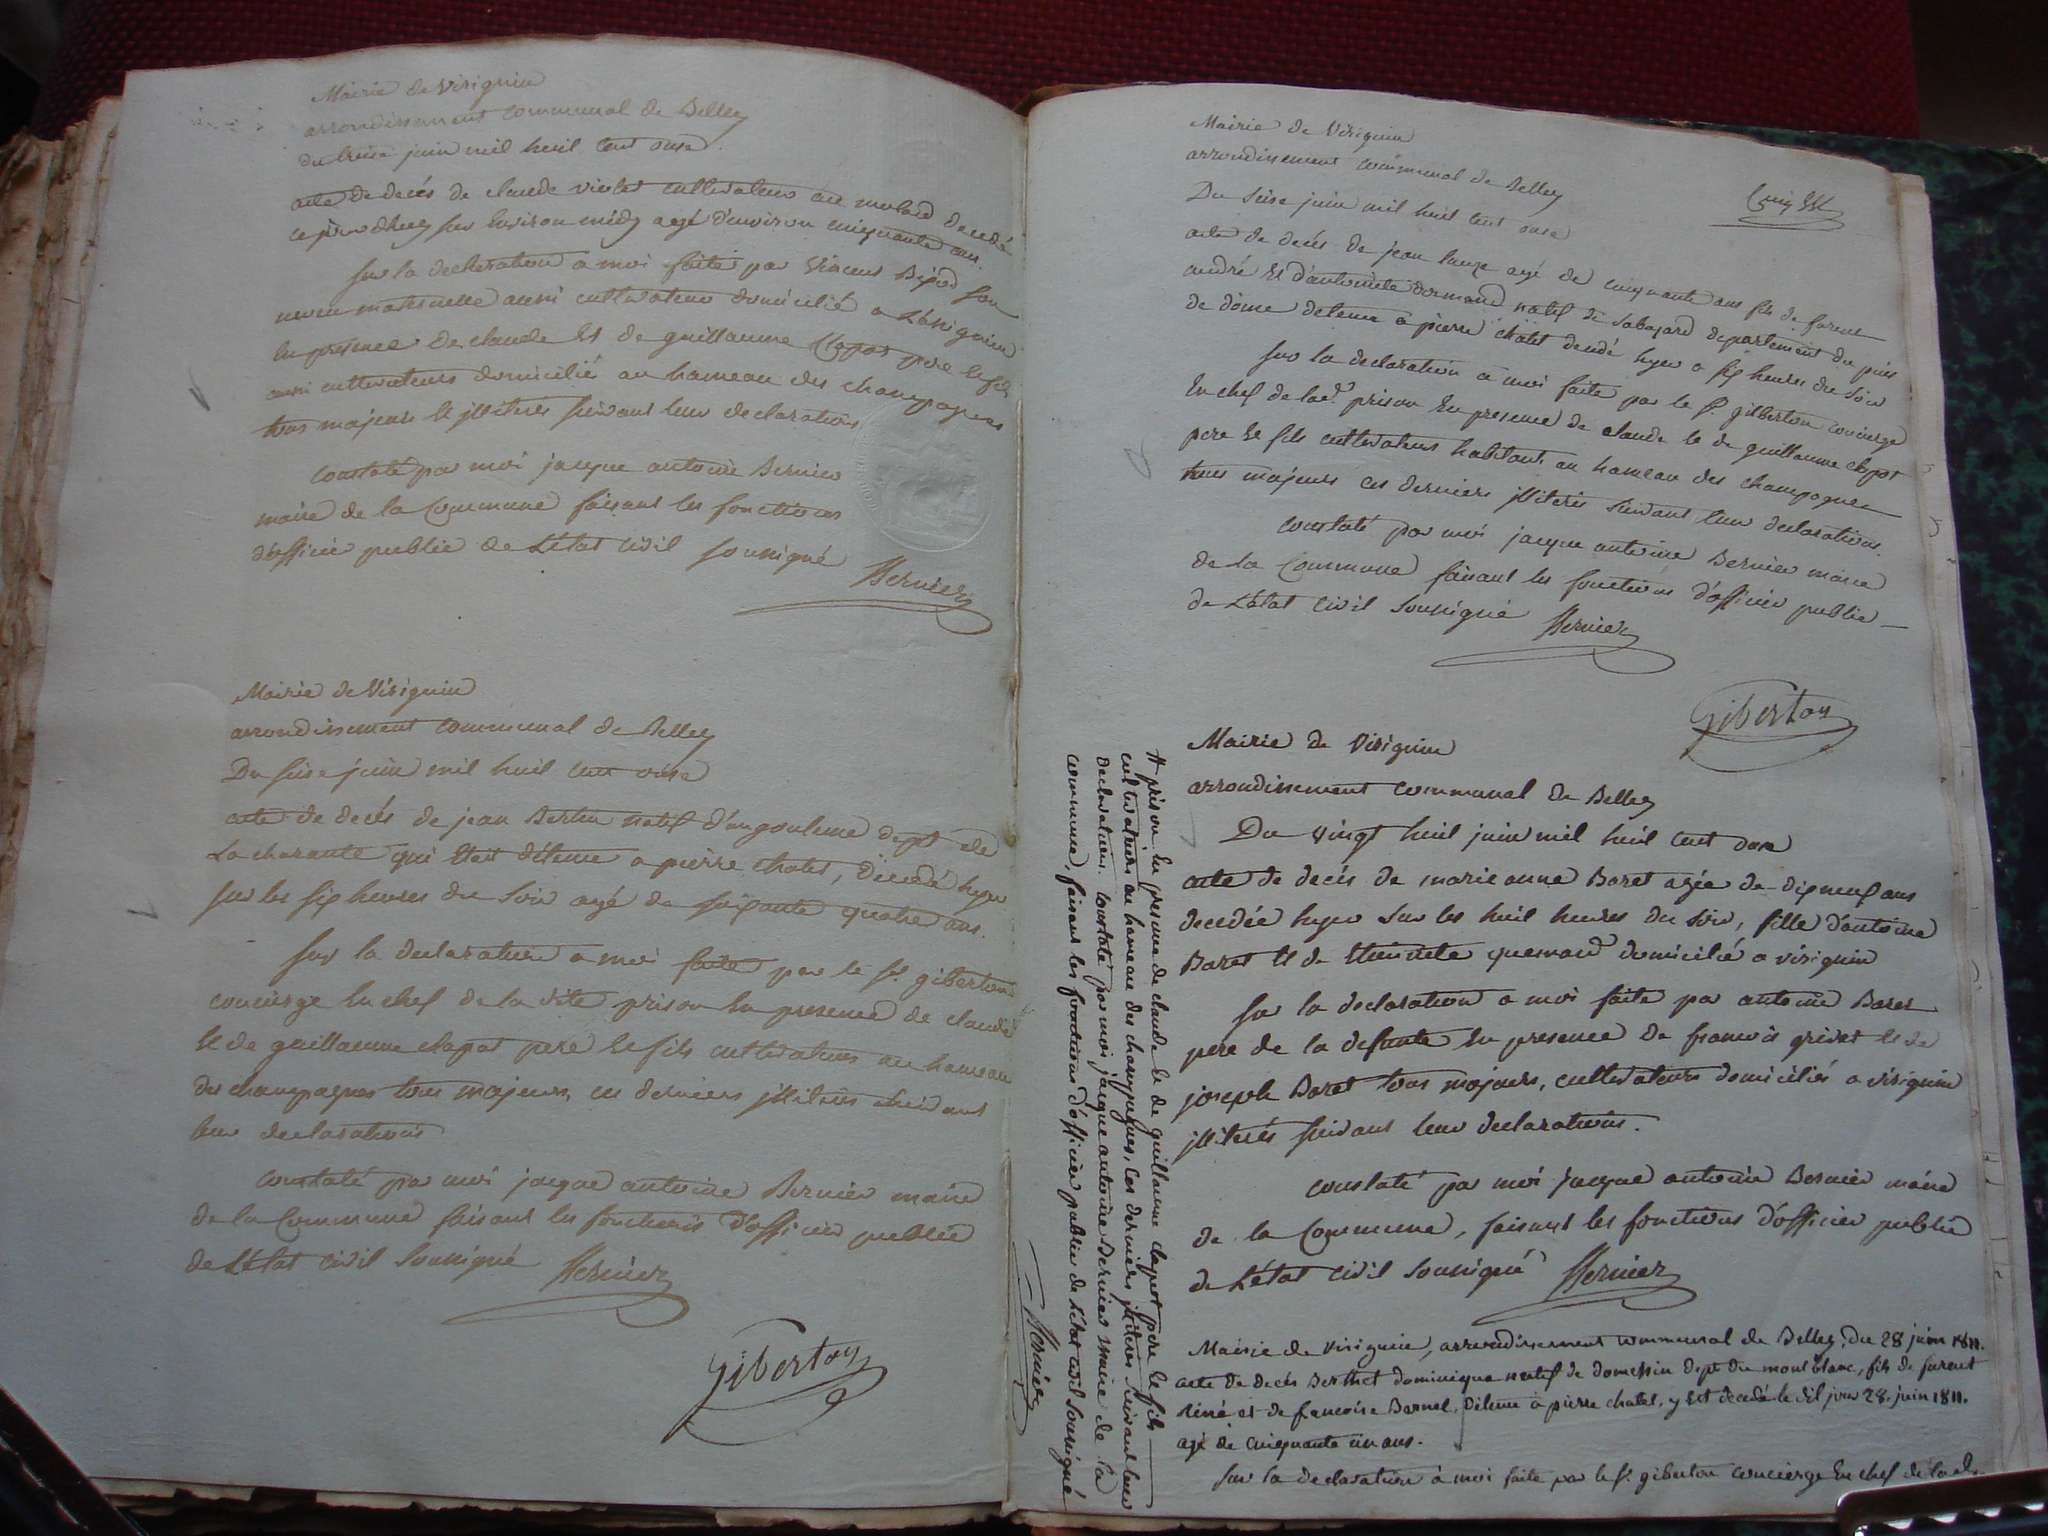 Mairie de Virignin
arrondissement communal de Belley
du treise juin mil huit cent onse.
acte de decés de claude violet cultivateur au molard decedé
ce jourdhuy sur environ midy agé d'environ cinquante ans.
sur la declaration a moi faite par vincent Bejod son
neveu maternelle aussi cultivateur domicilié a Virignin
En presence de claude Et de guillaume Clapot pere le fils
aussi cultivateurs domicilié au hameau des champagnes
tous majeurs Et jlliterés suivant leur declaration
constaté par moi jacque antoine Bernier
maire de la Commune faisant les fonctions
d'officier public de L'état Civil soussigné
Bernier
Mairie de Virignin
arrondissement communal de Belley
Du seise juin mil huit cent onse
acte de decés de jean Bertin natif d'angouleme dept de
La charante qui Etait détenu a pierre chatel, décedé hyer
sur les six heures du soir agé de soixante quatre ans.
sur la declaration a moi faite par le sr. giberton
concierge En chef de la dite prison En presence de claude
Et de guillaume clapot pere Et fils cultivateurs au hameau
des champagnes tous majeurs, ces derniers jlliterés suivant
leur declarations
constaté par moi jacque antoine Bernier maire
de la Commune faisant les fonctions d'officier public
de L'état Civil soussigné
Bernier
Giberton
Mairie de Virignin
arrondissement communal de Belley
Du seise juin mil huit cent onse
acte de decés de jean lauze agé de cinquante ans fils de furent
andré Et d'antoinete dormand natif de département du puis
de dome detenu a pierre châtel decedé hyer a six heures du soir
sur la declaration a moi faite par le sr. giberton concierge
En chef de lad. prison En presence de claude Et de guillaume clapot
pere Et fils cultivateurs habitants au hameau des champagnes
tous majeurs ces derniers jlliterés suivant leur declarations.
constaté par moi jacque antoine Bernier maire
de la Commune faisant les fonctions d'officier public
de L'état Civil soussigné
Bernier
Giberton
Mairie de Virignin
arrondissement communal de Belley
Du vingt huit juin mil huit cent onse
acte de decés de marie anne Baret agée de dix neuf ans
decedée hyer sur les huit heures du soir, fille d'antoine
Baret Et de domicilié a virignin
sur la declaration a moi faite par antoine Baret
pere de la defunte En presence de francois grivet Et de
joseph Baret tous majeurs, cultivateurs domiciliés a virignin
jlliterés suivant leur declarations.
constaté par moi jacque antoine Bernier maire
de la Commune, faisant les fonctions d'officier public
de L'état Civil soussigné
Bernier
Mairie de virignin, arrondissement communal de Belley, du 28 juin 1811.
acte de decés Berthet dominique natif de domessin dept du mont blanc, fils de furent
Réné et de francoise Bornel, Détenu à pierre chatel, y Est decedé le dit jour 28. juin 1811.
agé de cinquante un ans.
sur la declaration à moi faite par le sr. giberton concierge En chef de la d.
prison En presence de claude Et de guillaume clapot pere Et fils
cultivateurs au hameau des champagnes, ces derniers jlliterés suivant leur
declarations. constaté par moi jacque antoine Bernier maire de la
commune, faisant les fonctions d'officier public de L'état civil soussigné
Bernier